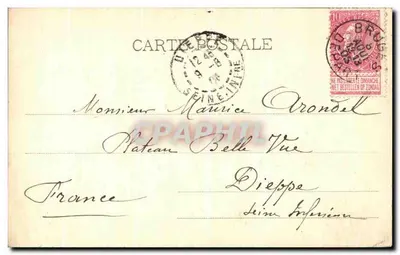 CARTE POSTALE
BRUGES
DIEPPE
12 45
9 -8
SEINE-INFRE
NE PAS LIVRER LE DIMANCHE
NIET BESTELLEN OP ZONDAG
Monsieur Maurice Arondel
Plateau Belle Vue
France
Dieppe
Seine Inférieure